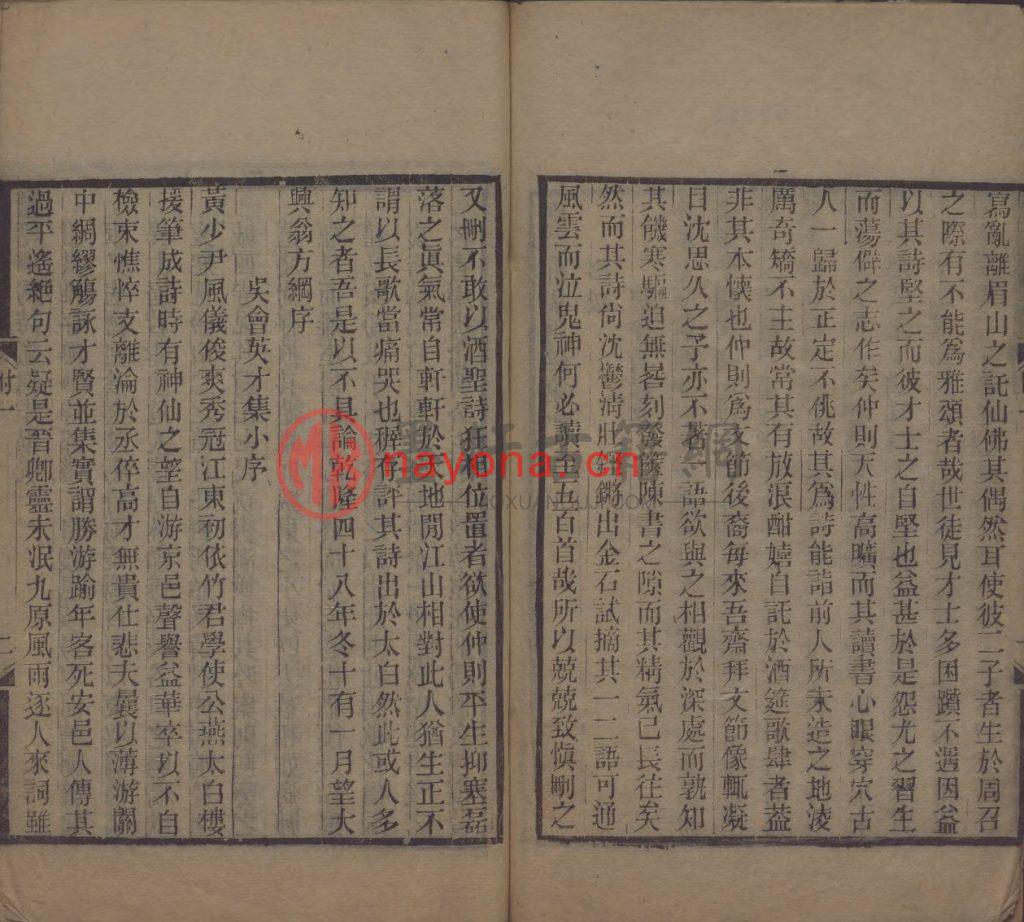 寫亂離眉山之託仙佛其偶然耳使彼二子者生於周召
之際有不能爲雅頌者哉世徒見才士多困躓不遇因益
以其詩堅之而彼才士之自堅也益甚於是怨尤之習生
而蕩僻之志作矣仲則天性高曠而其讀書心眼穿穴古
人一歸於正定不佻故其爲詩能詣前人所未造之地淩
厲奇矯不主故常其有放浪酣嬉自託於酒筵歌肆者葢
非其本懷也仲則爲文節後裔每來吾齋拜文節像輒凝
目沈思久之予亦不著一語欲與之相觀於深處而孰知
其饑寒驅迫無晷刻發篋陳書之隙而其精氣已長往矣
然而其詩尙沈鬱淸壯鏗鏘出金石試摘其一二語可通
風雲而泣鬼神何必讀至五百首哉所以兢兢致愼刪之
又刪不敢以酒聖詩狂相位置者欲使仲則平生抑塞磊
落之眞氣常自軒軒於天地閒江山相對此人猶生正不
謂以長歌當痛哭也穉存評其詩出於太白然此或人多
知之者吾是以不具論乾隆四十八年冬十有一月望大
興翁方綱序
吳會英才集小序
黃少尹風儀俊爽秀冠江東初依竹君學使公燕太白樓
援筆成詩時有神仙之望自游京邑聲譽益華卒以不自
檢束憔悴支離淪於丞倅高才無貴仕悲夫曩以薄游關
中綢繆觴詠才賢並集實謂勝游踰年客死安邑人傳其
過平遙絶句云疑是晉卿靈未泯九原風雨逐人來詞雖
附一
二
nayona.cn